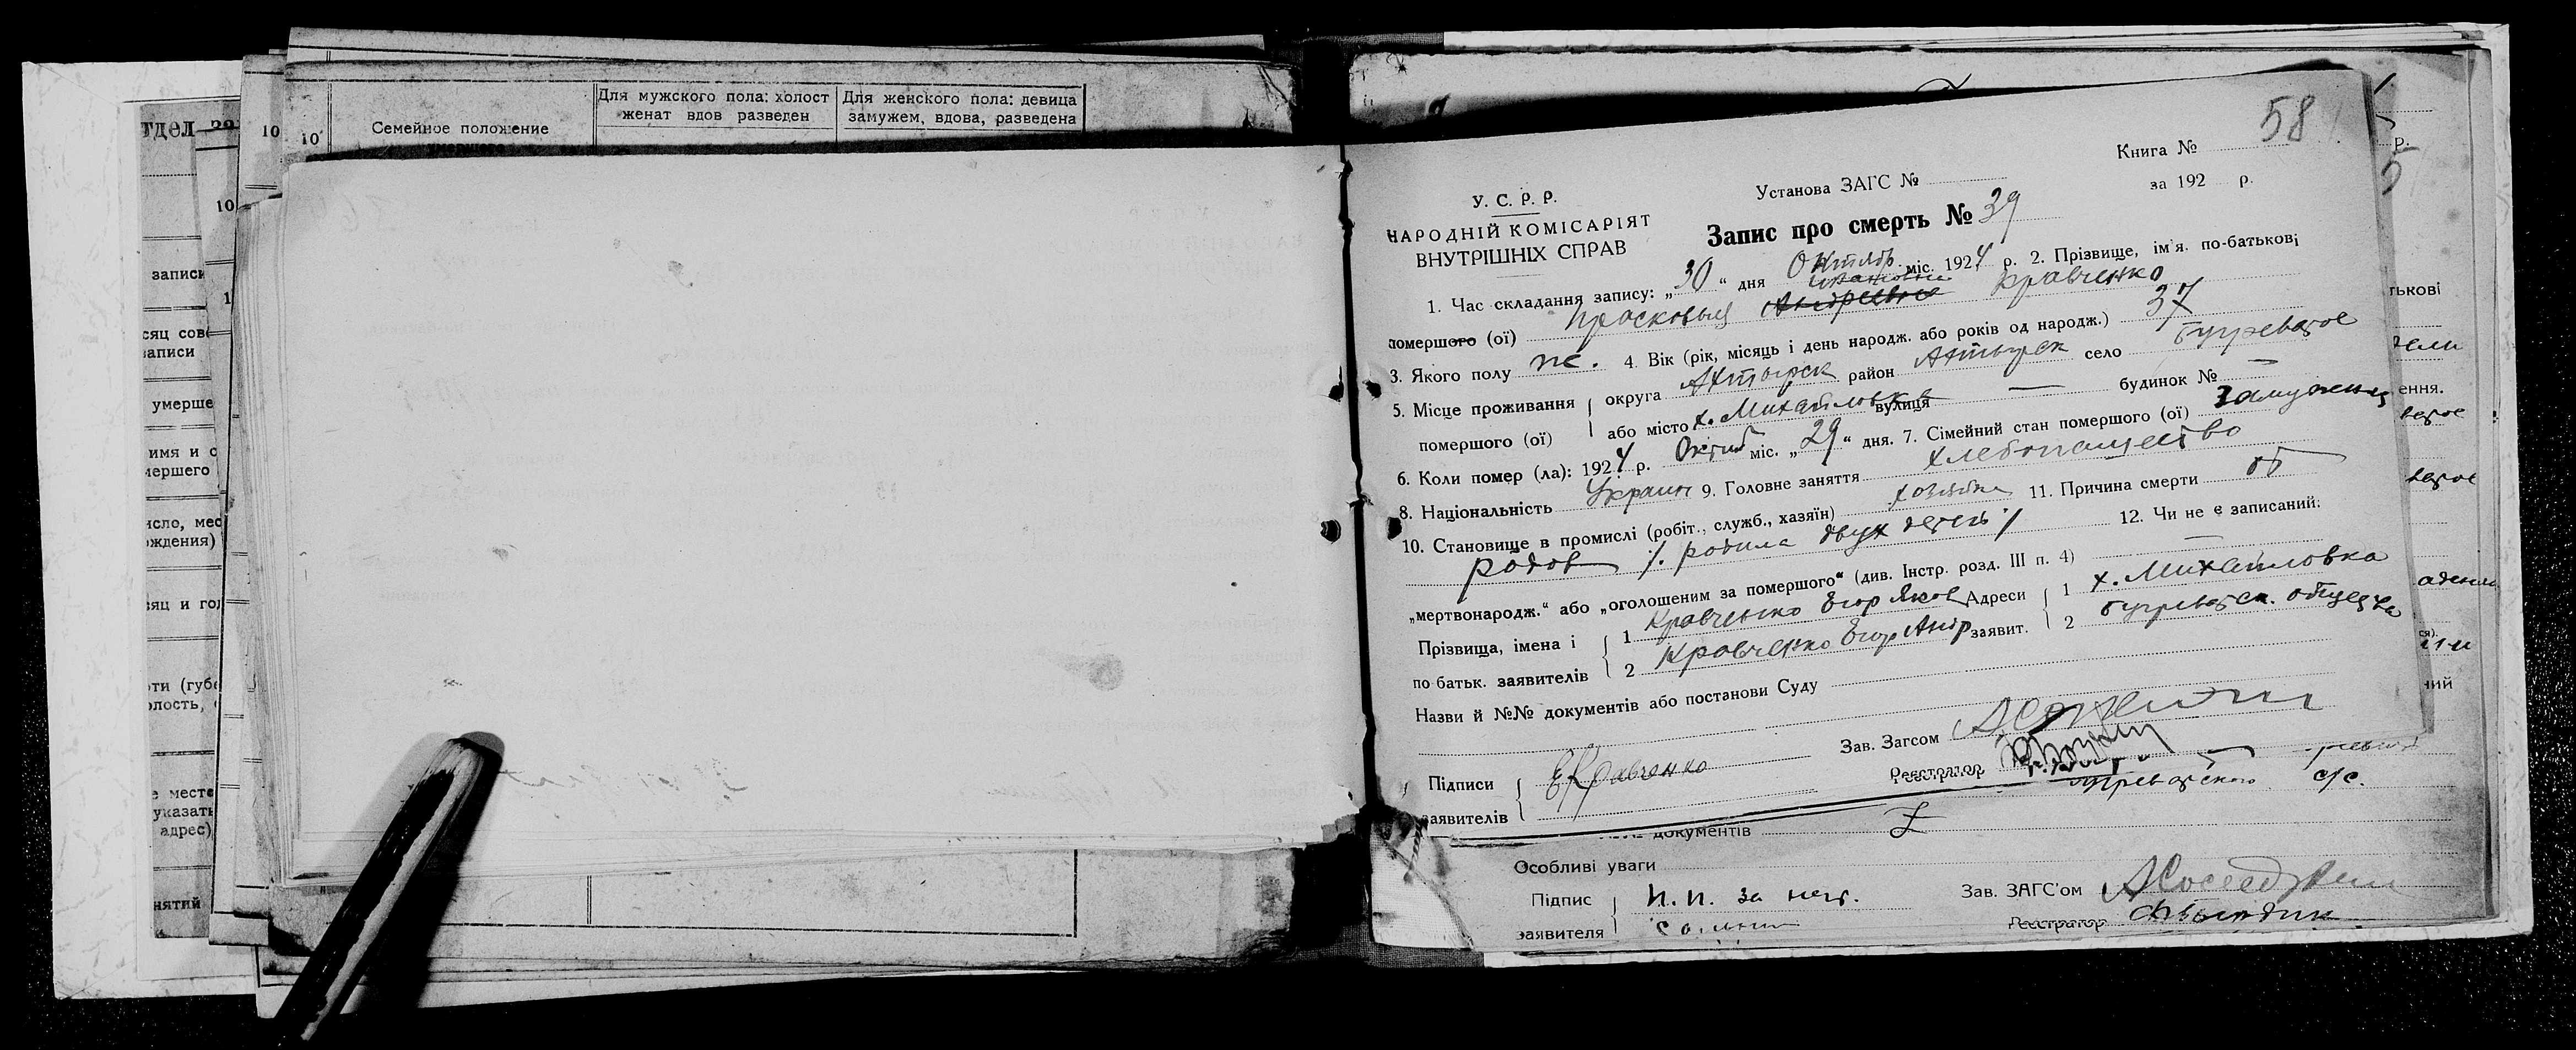 тдел
10
10
10
Семейное положение
Для мужского пола: холост
женат вдов разведен
Для женского пола: девица
замужем, вдова, разведена
записи
умерше
имя и
мершего
ождения)
адрес)
нятий
58
Книга №
У. С. Р. Р.
Установа ЗАГС №
за 192 р.
НАРОДНІЙ КОМІСАРІЯТ
ВНУТРІШНІХ СПРАВ
Запис про смерть № 39
1. Час складання запису: „30“ дня Октябр. міс. 1924 р. 2. Прізвище, ім'я. по-батькові
помершого (ої) Прасковья Андреевна Кравченко
3. Якого полу ж. 4. Вік (рік, місяць і день народж. або років од народж.) 37
5. Місце проживання округа Ахтырск район Ахтырск село Бугреватое
помершого (ої) або місто х. Михайловка вулиця — будинок № —
6. Коли помер (ла): 1924 р. Октяб міс. „29“ дня. 7. Сімейний стан помершого (ої) замужняя
8. Національність Украин 9. Головне заняття хлебопашество
10. Становище в промислі (робіт., служб., хазяїн) хозяйка 11. Причина смерти от
родов /. родила двух детей ./ 12. Чи не є записаний:
„мертвонародж.“ або „оголошеним за помершого“ (див. Інстр. розд. III п. 4) —
Прізвища, імена і 1 Кравченко Егор Яков Адреси 1 х. Михайловка
по батьк. заявителів 2 Кравченко Егор Андр заявит. 2 Бугреватск. общества
Назви й №№ документів або постанови Суду
Зав. Загсом
Підписи ЕКравченко Реєстратор
заявителів
с/с.
документів
Особливі уваги
Підпис Н. Н. за нег. Зав. ЗАГС'ом
заявителя Реєстратор